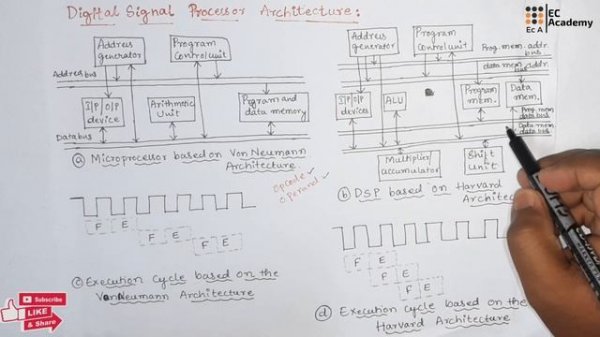 Digital Signal Processor Architecture:
EC
Academy
EC A
Address
generator
Program
Control unit
Address bus
I|P O|P
device
Arithmetic
Unit
Program and
data memory
Data bus
(a) Microprocessor based on Von Neumann
Architecture.
opcode
operand
F E
F E
F E
(c) Execution cycle based on the
Von Neumann Architecture
Address
generator
Program
Control unit
Prog. mem. addr.
bus
data mem. addr.
bus
I|P O|P
devices
ALU
Program
mem.
Data
mem.
Prog. mem
data bus
Data mem.
data bus
Multiplier
accumulator
Shift
unit
(b) DSP based on Harvard
Architec
F E
F E
F E
(d) Execution cycle based on the
Harvard Architecture
Subscribe
LIKE
& Share